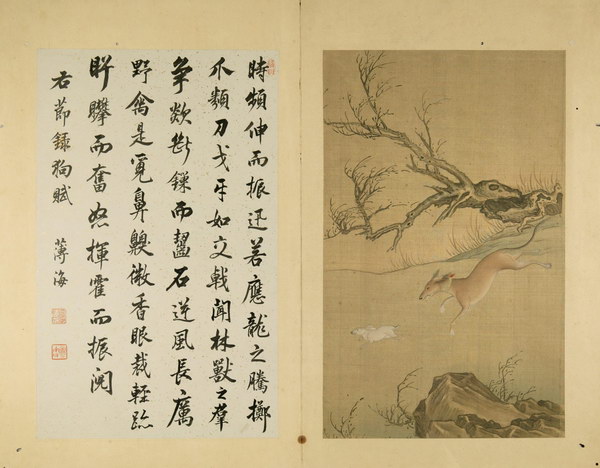 時頻伸而振迅若應龍之騰擲
爪類刀戈牙如交戟聞林獸之羣
爭欻斷鏁而齧石逆風長厲
野禽是覓鼻𪖙微香眼裁輕跡
盱矍而奮怒揮霍而振
右節録狗賦
薄海